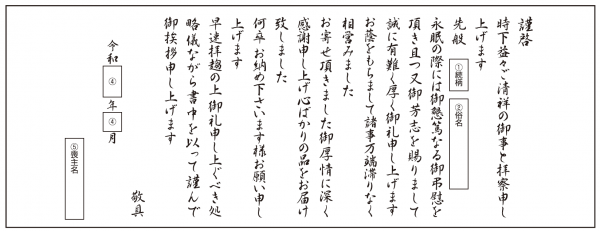 謹啓
時下益々ご清祥の御事と拝察申し
上げます
先般 ①続柄 ②俗名
永眠の際には御懇篤なる御弔慰を
頂き且つ又御芳志を賜りまして
誠に有難く厚く御礼申し上げます
お蔭をもちまして諸事万端滞りなく
相営みました
お寄せ頂きました御厚情に深く
感謝申し上げ心ばかりの品をお届け
致しました
何卒お納め下さいます様お願い申し
上げます
早速拝趨の上御礼申し上ぐべき処
略儀ながら書中を以って謹んで
御挨拶申し上げます
敬具
令和 ④ 年 ④ 月
⑤喪主名